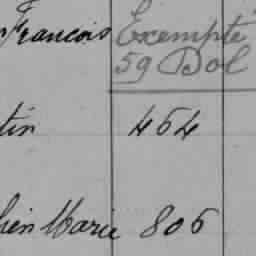 François Exempté
59 Dol
tin 464
hien Marie 806